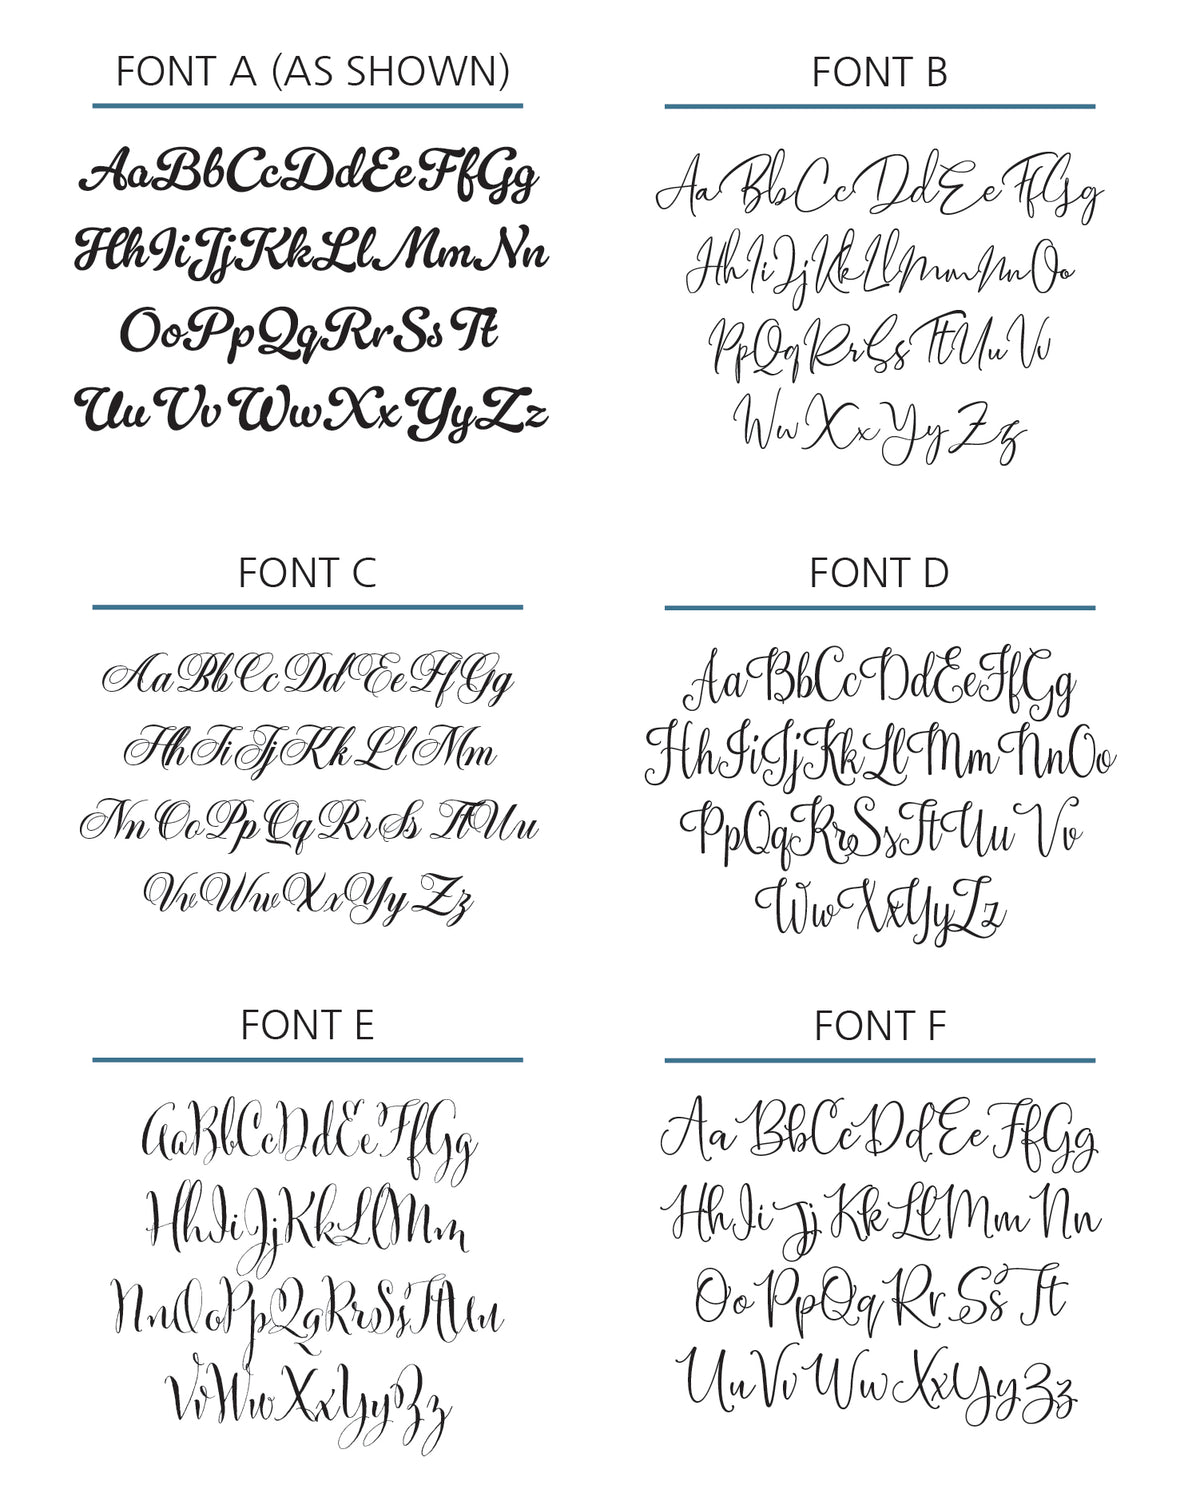 FONT A (AS SHOWN)
AaBbCcDdEeFfGg
HhIiJjKkLlMmNn
OoPpQqRrSsTt
UuVvWwXxYyZz
FONT B
AaBbCcDdEeFfGg
HhIiJjKkLlMmNnOo
PpQqRrSsTtUuVv
WwXxYyZz
FONT C
AaBbCcDdEeFfGg
HhIiJjKkLlMm
NnOoPpQqRrSsTtUu
VvWwXxYyZz
FONT D
AaBbCcDdEeFfGg
HhIiJjKkLlMmNnOo
PpQqRrSsTtUuVv
WwXxYyZz
FONT E
AaBbCcDdEeFfGg
HhIiJjKkLlMm
NnOoPpQqRrSsTtUu
VvWwXxYyZz
FONT F
AaBbCcDdEeFfGg
HhIiJjKkLlMmNn
OoPpQqRrSsTt
UuVvWwXxYyZz